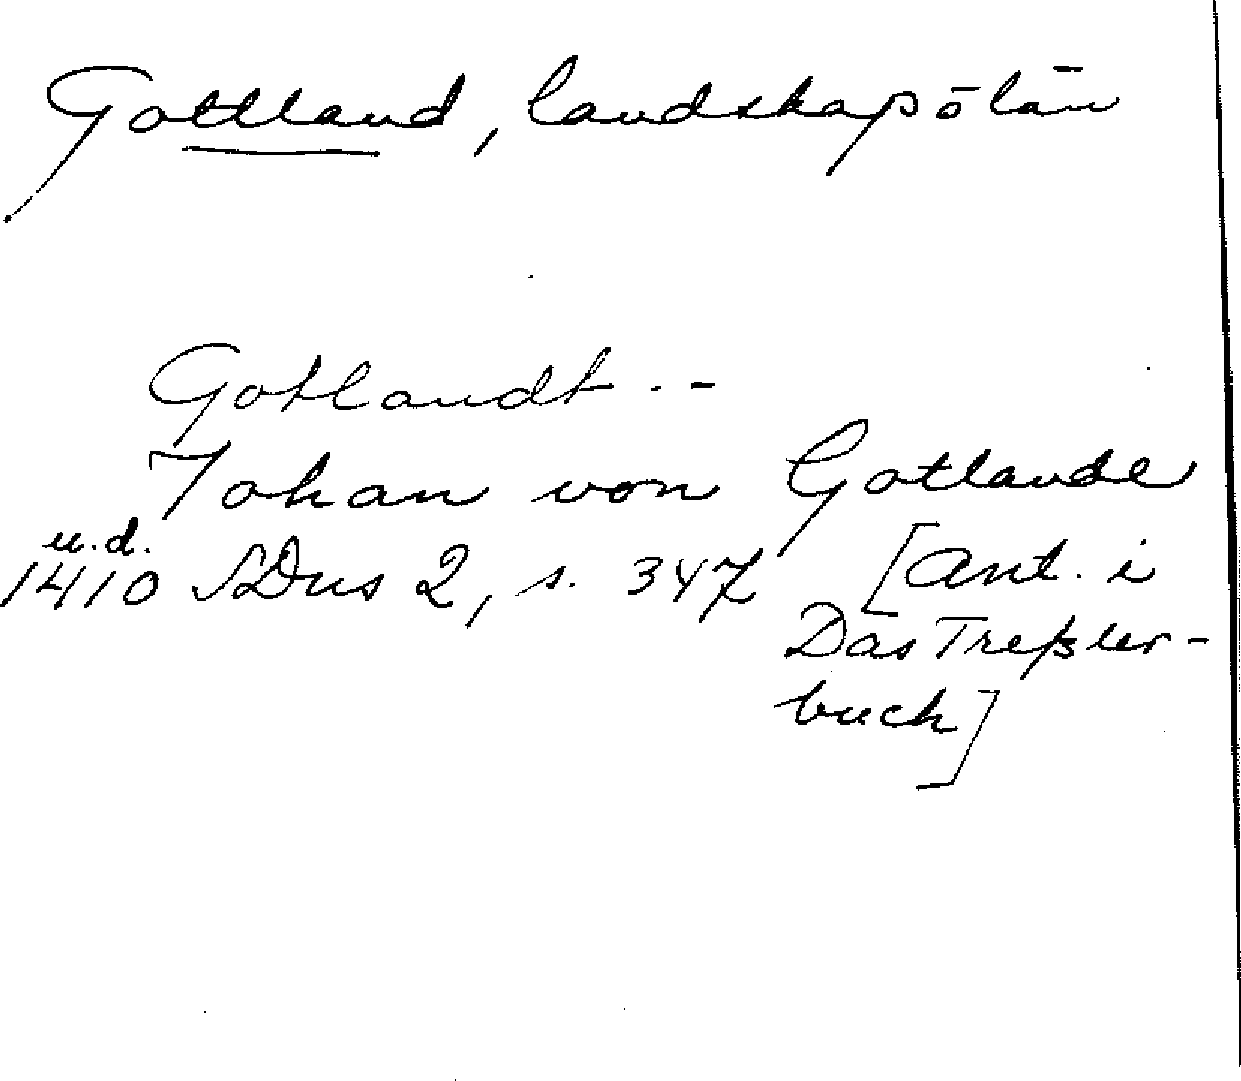 Gottland, landskap o län
Gotlandt . -
Johan von Gotlande
u.d.
1410 SDns 2, s. 347 [Ant. i
Das Treßler-
buch]